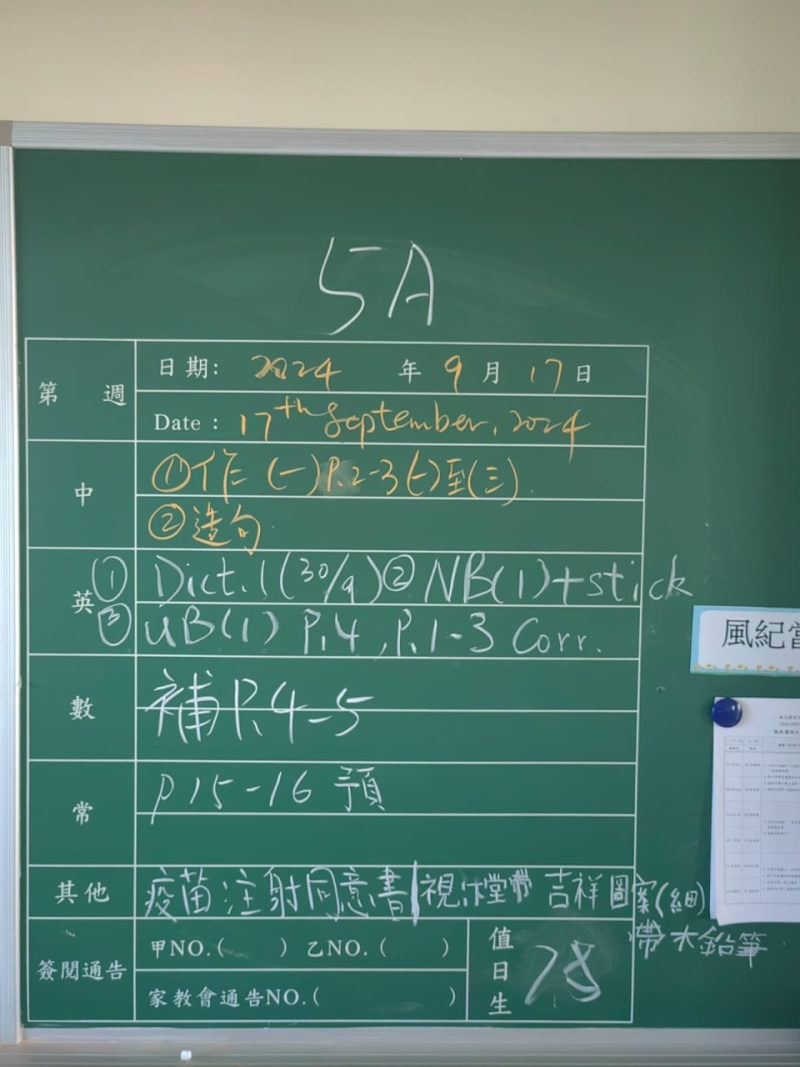 5A
第 週
日期: 2024 年 9 月 17 日
Date : 17th September, 2024
中
①作 (一) P.2-3 (一)至(三)
②造句
英
① Dict. 1 (30/9) ② NB(1)+stick
③ UB(1) P.4 , P.1-3 Corr.
數
補 P.4-5
常
P15-16 預
其他
疫苗注射同意書 視 堂帶 吉祥圖案(細)
帶木鉛筆
簽閱通告
甲NO.( ) 乙NO.( )
家教會通告NO.( )
值日生
風紀當